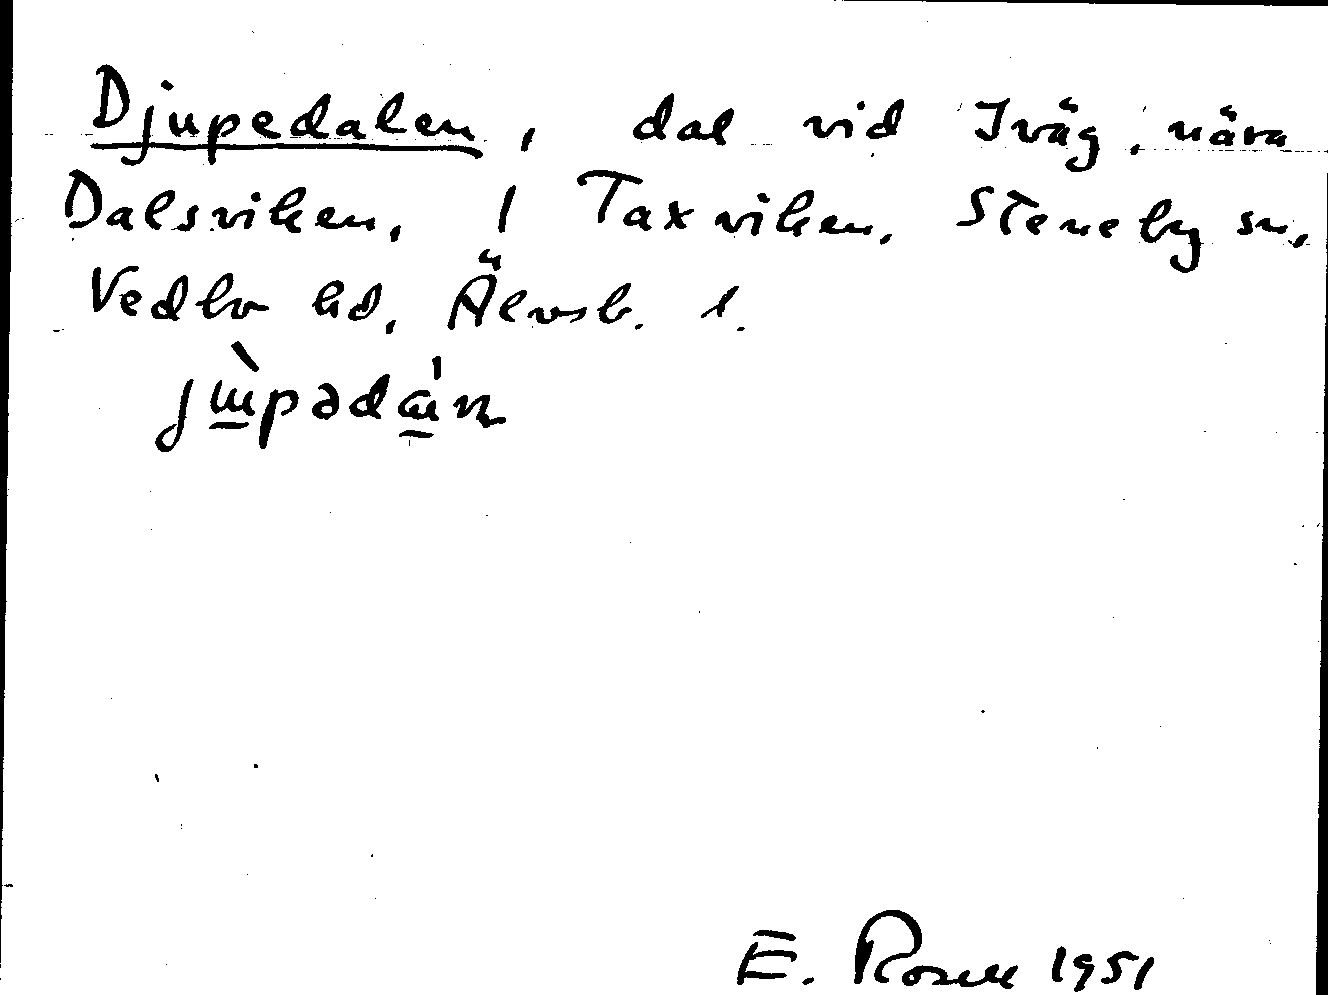 Djupedalen, dal vid Iväg, nära
Dalsviken, / Taxviken, Steneby sn,
Vedbo hd, Älvsb. l.
E. Rosell 1951